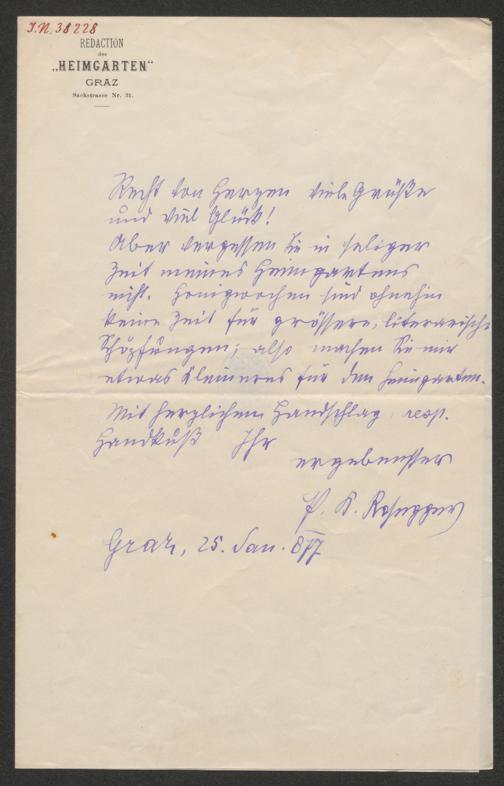 I.N. 38228
REDACTION
des
„HEIMGARTEN“
GRAZ
Sackstrasse Nr. 21.
Recht von Herzen viele Grüße
und viel Glück!
Aber vergessen Sie in seliger
Zeit meines Heimgartens
nicht. Honigwochen sind ohnehin
keine Zeit für grössere, literarische
Schöpfungen; also machen Sie mir
etwas Kleineres für den Heimgarten.
Mit herzlichem Handschlag resp.
Handkuß Ihr
ergebenster
P. K. Rosegger
Graz, 25. Jan. 877